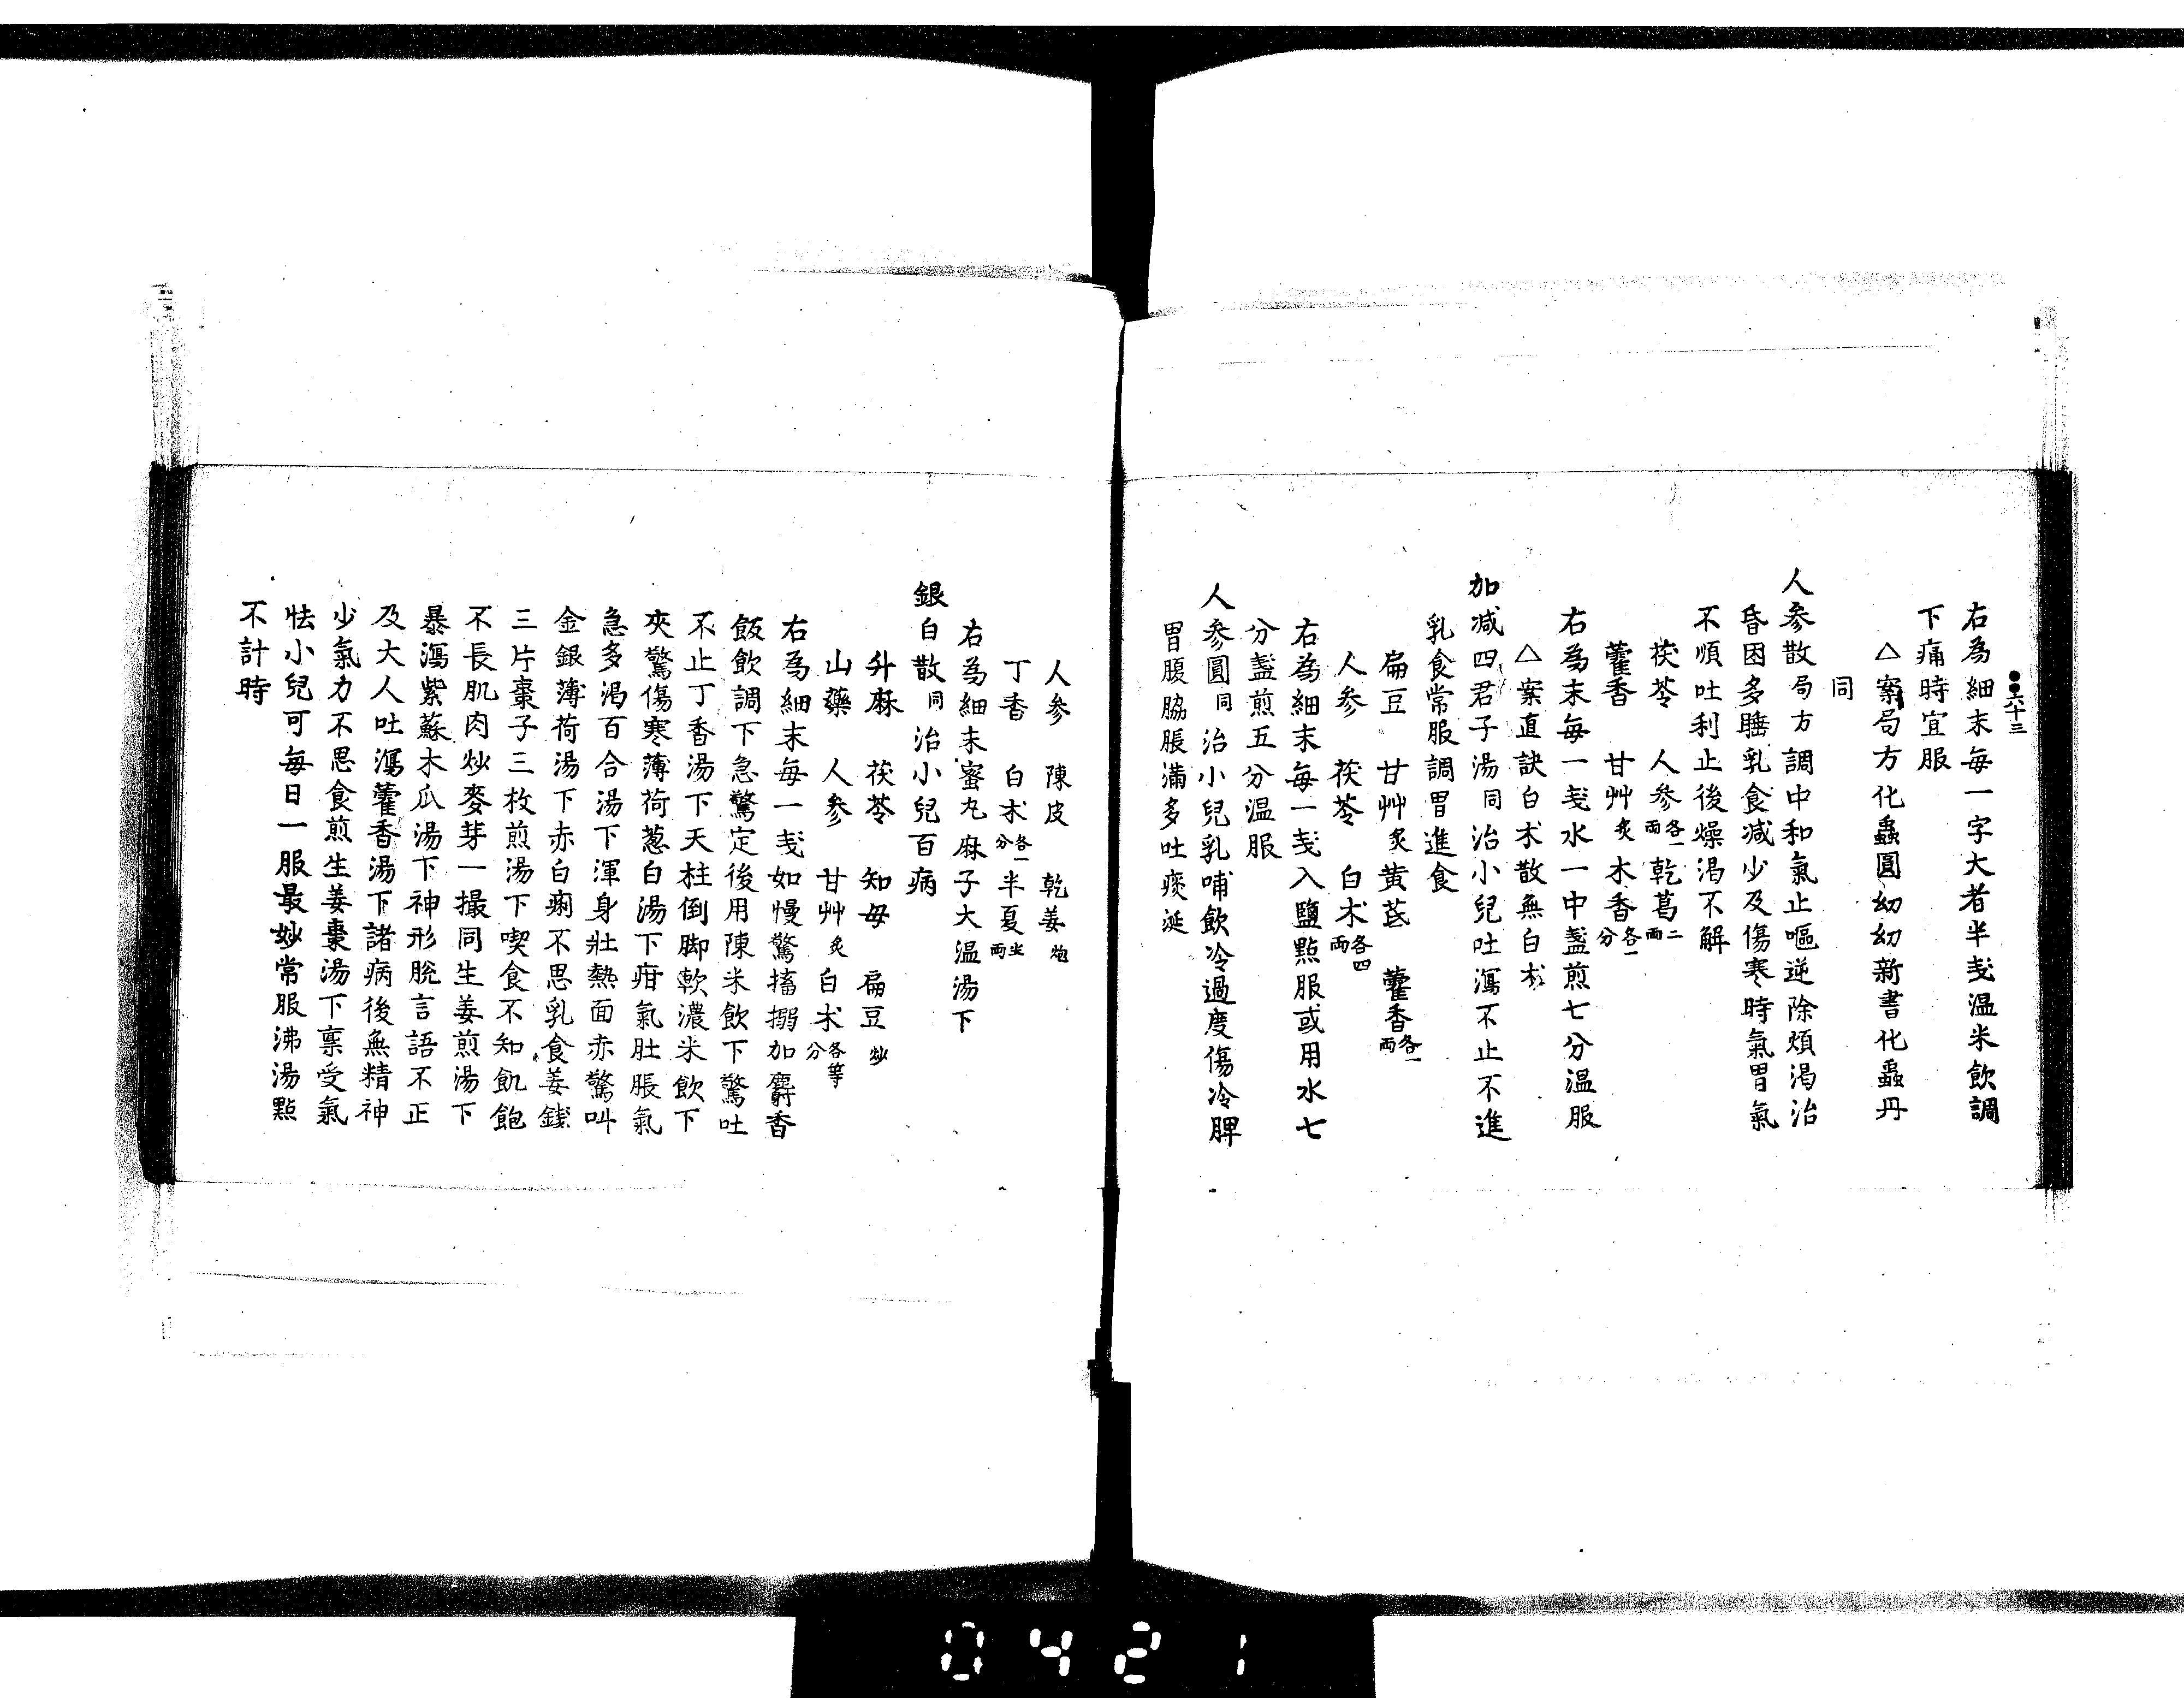 六十三
右為細末每一字大者半戔温米飲調
下痛時宜服
△案局方化蟲圓幼幼新書化蟲丹
同
人參散局方調中和氣止嘔逆除煩渴治
昏困多睡乳食减少及傷寒時氣胃氣
不順吐利止後燥渴不解
茯苓 人參各一兩 乾葛二兩
藿香 甘艸炙 木香各一分
右為末每一戔水一中盞煎七分温服
△案直訣白朮散無白朮
加减四君子湯同治小兒吐瀉不止不進
乳食常服調胃進食
扁豆 甘艸炙 黄芪 藿香各一兩
人參 茯苓 白朮各四兩
右為細末每一戔入鹽點服或用水七
分盞煎五分温服
人參圓同治小兒乳哺飲冷過度傷冷脾
胃腹脇脹滿多吐痰涎
人參 陳皮 乾姜炮
丁香 白朮各一分 半夏半兩
右為細末蜜丸麻子大温湯下
銀白散同治小兒百病
升麻 茯苓 知母 扁豆炒
山藥 人參 甘艸炙 白朮各等分
右為細末每一戔如慢驚搐搦加麝香
飯飲調下急驚定後用陳米飲下驚吐
不止丁香湯下天柱倒脚軟濃米飲下
夾驚傷寒薄荷葱白湯下疳氣肚脹氣
急多渴百合湯下渾身壯熱面赤驚叫
金銀薄荷湯下赤白痢不思乳食姜錢
三片棗子三枚煎湯下喫食不知飢飽
不長肌肉炒麥芽一撮同生姜煎湯下
暴瀉紫蘇木瓜湯下神形脱言語不正
及大人吐瀉藿香湯下諸病後無精神
少氣力不思食煎生姜棗湯下禀受氣
怯小兒可每日一服最妙常服沸湯點
不計時
0421